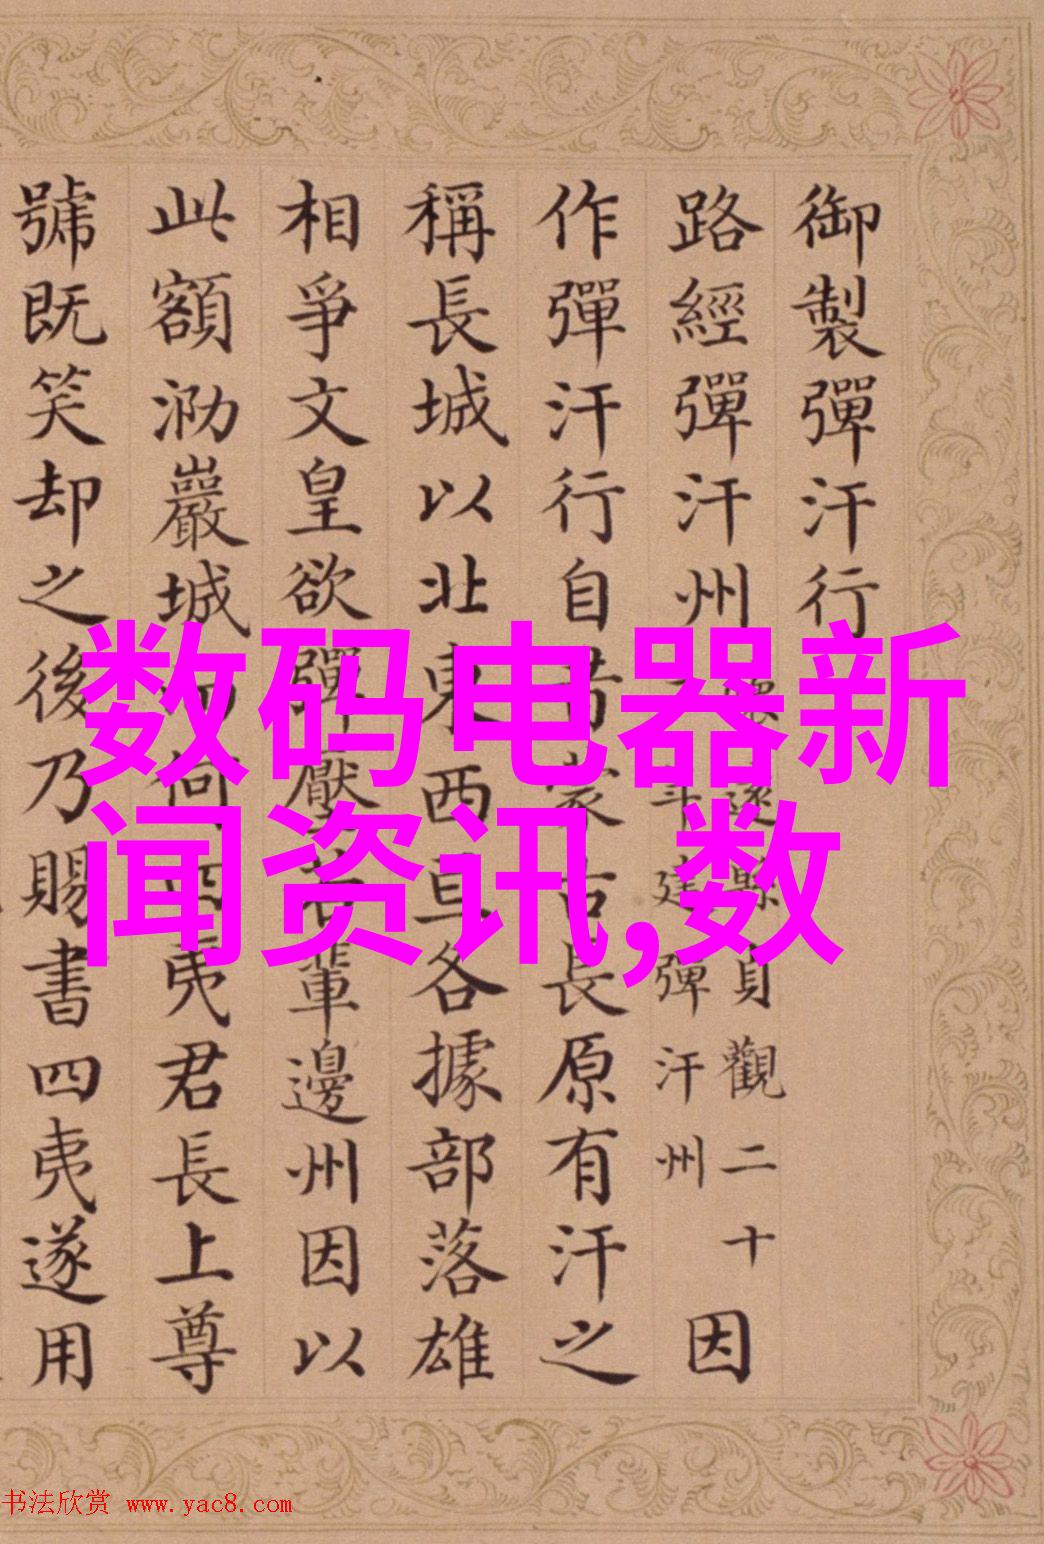 御製彈汗行
路經彈汗州
縣貞觀二十
建彈汗州
因
作彈汗行自昔蒙古長原有汗之
稱長城以北東西亘各據部落雄
相爭文皇欲彈壓若輩邊州因以
此額泐巖城何四夷君長上尊
號既笑却之後乃賜書四夷遂用
数码电器新
闻资讯,数
书法欣赏 www.yac8.com